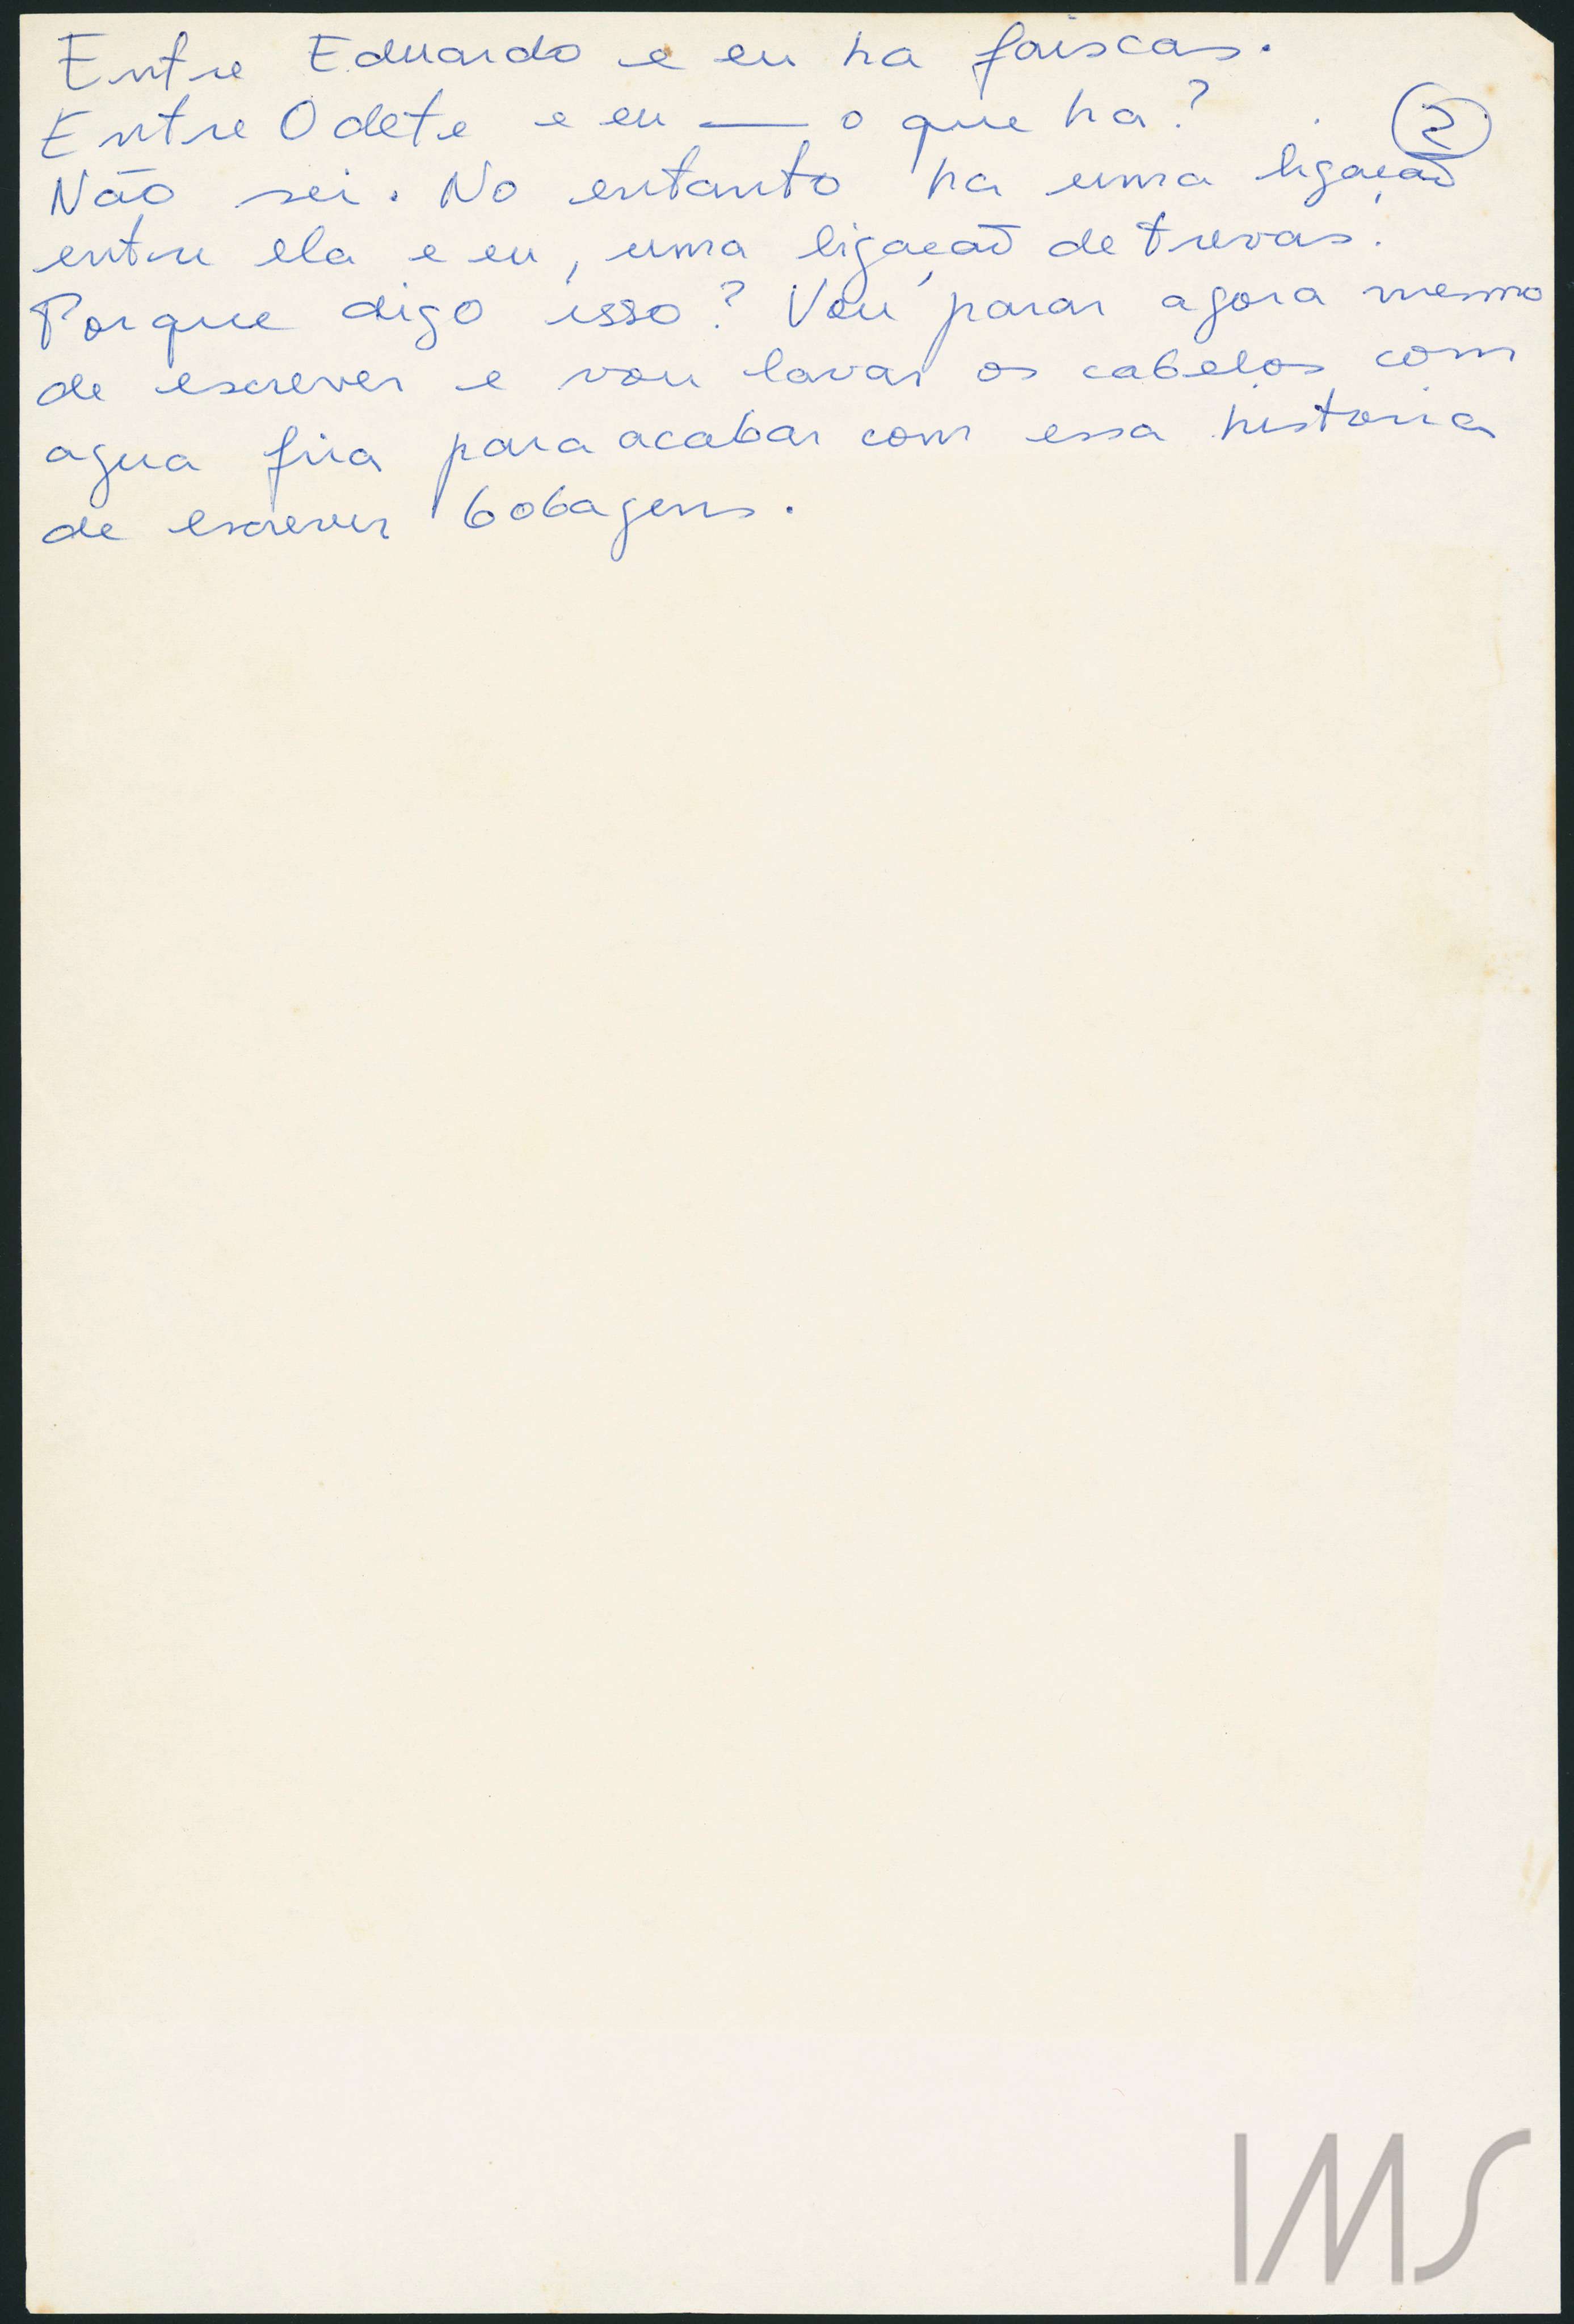 Entre Eduardo e eu ha faiscas.
Entre Odete e eu — o que ha?
2
Não sei. No entanto ha uma ligação
entre ela e eu, uma ligação de trevas.
Porque digo isso? Vou parar agora mesmo
de escrever e vou lavar os cabelos com
agua fria para acabar com essa historia
de escrever bobagens.
IMS